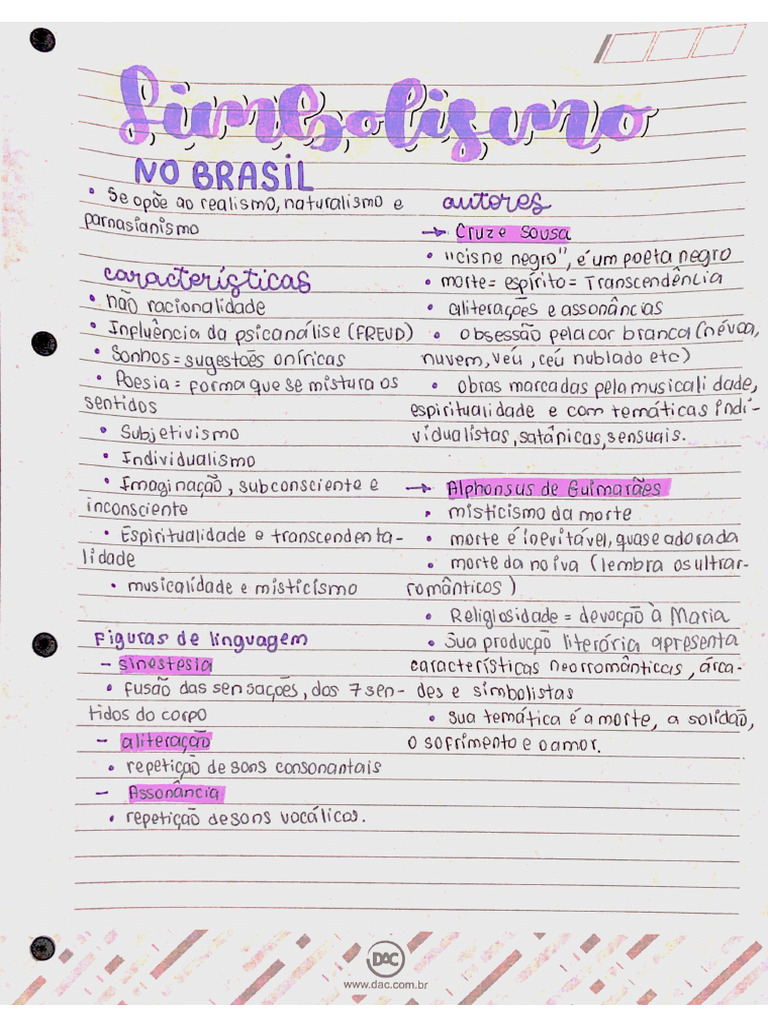 Simbolismo
NO BRASIL
• Se opõe ao realismo, naturalismo e
parnasianismo
características
• não racionalidade
• Influência da psicanálise (FREUD)
• Sonhos = sugestões oníricas
• Poesia = forma que se mistura os
sentidos
• Subjetivismo
• Individualismo
• Imaginação, subconsciente e
inconsciente
• Espiritualidade e transcendenta-
lidade
• musicalidade e misticismo
Figuras de linguagem
- sinestesia
• fusão das sensações, dos 7 sen-
tidos do corpo
- aliteração
• repetição de sons consonantais
- Assonância
• repetição de sons vocálicos.
autores
→ Cruz e Sousa
• "cisne negro", é um poeta negro
• morte = espírito = Transcendência
• aliterações e assonâncias
• obsessão pela cor branca (névoa,
nuvem, véu, céu nublado etc)
• obras marcadas pela musicalidade,
espiritualidade e com temáticas indi-
vidualistas, satânicas, sensuais.
→ Alphonsus de Guimarães
• misticismo da morte
• morte é inevitável, quase adorada
• morte da noiva (lembra os ultrar-
românticos)
• Religiosidade = devoção à Maria
• Sua produção literária apresenta
características neorromânticas, árca-
des e simbolistas
• sua temática é a morte, a solidão,
o sofrimento e o amor.
DAC
www.dac.com.br